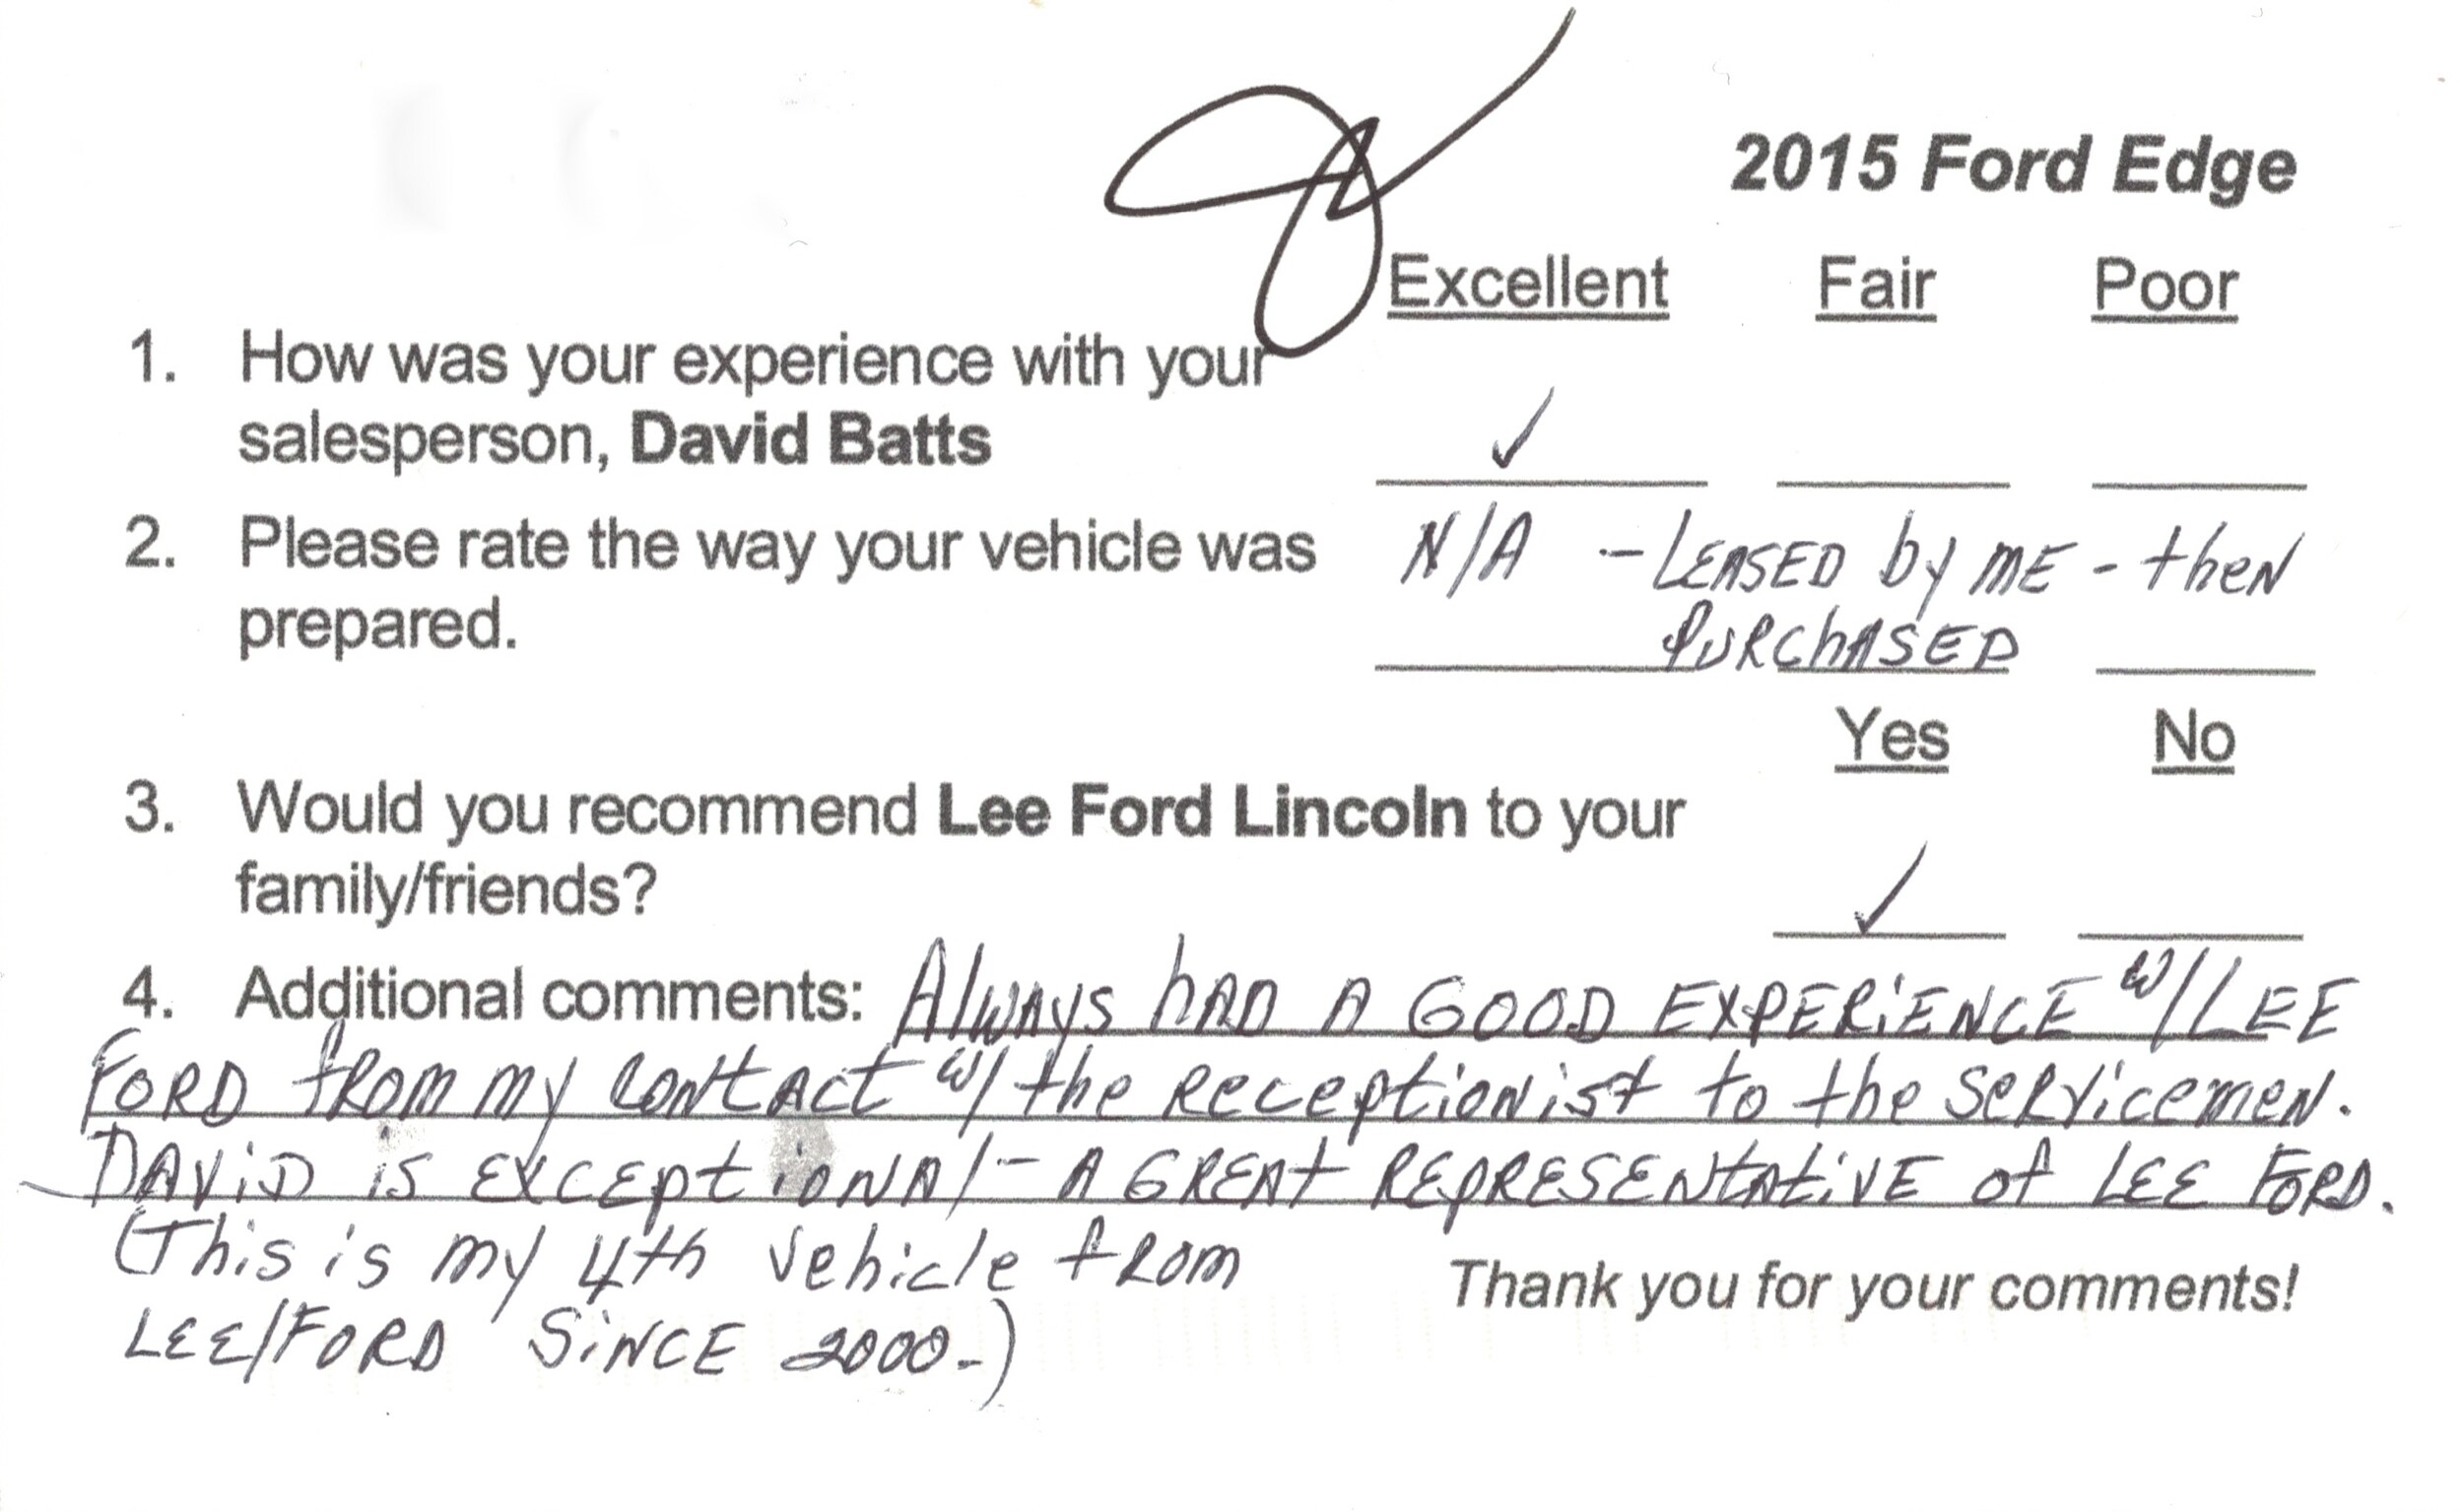 2015 Ford Edge
Excellent Fair Poor
1. How was your experience with your
salesperson, David Batts ✓
2. Please rate the way your vehicle was N/A - LEASED by ME - then
prepared. PURChASED
Yes No
3. Would you recommend Lee Ford Lincoln to your
family/friends? ✓
4. Additional comments: Always hAD A GOOD EXPERiENCE w/LEE
FORD fROM my CONtACt w/ the Receptionist to the SeRvicemen.
DAViD is EXCEptiONAl - A GREAt REpRESENtAtiVE of LEE FORD.
(This is my 4th vehicle fRom
LEE/FORD SiNCE 2000-)
Thank you for your comments!